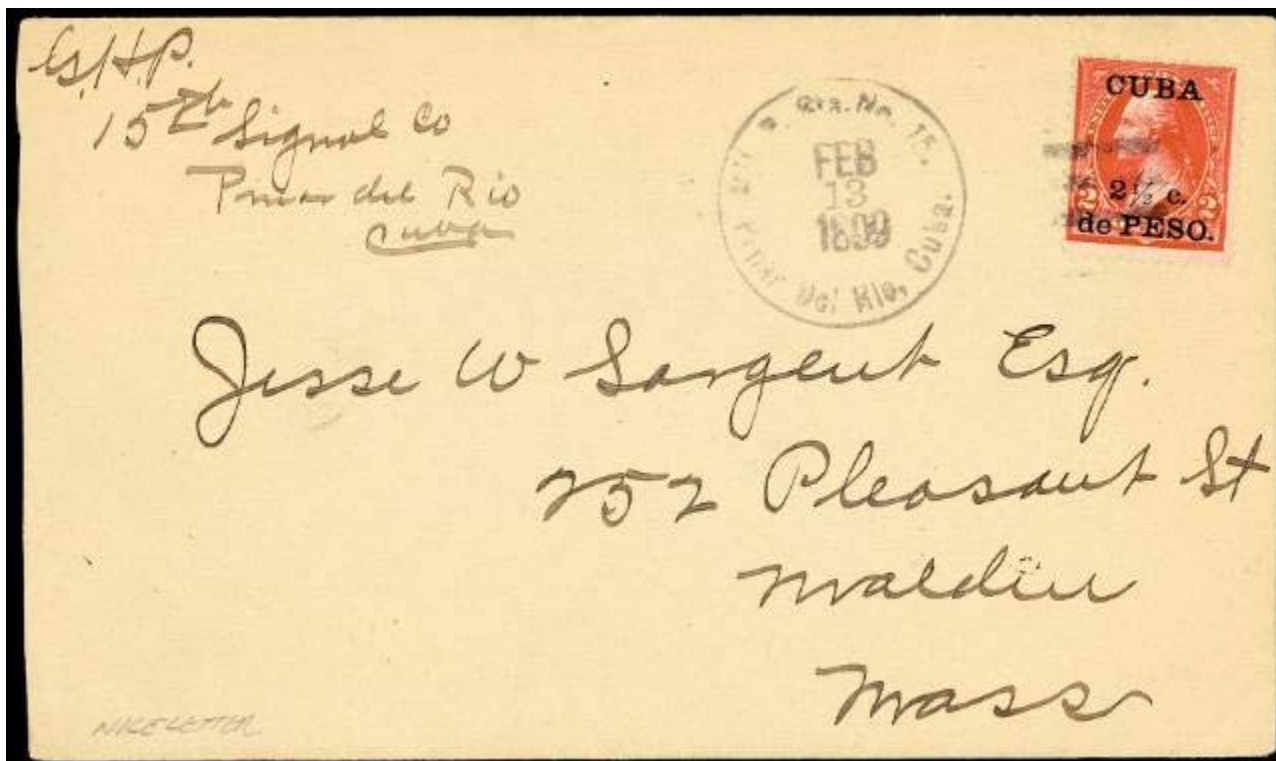 15th Signal Co
Pinar del Rio
Cuba
Sta. No. 15.
FEB
13
1899
Pinar Del Rio, Cuba.
CUBA
2 1/2 c.
de PESO.
2 2
Jesse W Sargent Esq.
252 Pleasant St
Malden
Mass
NICE LETTER